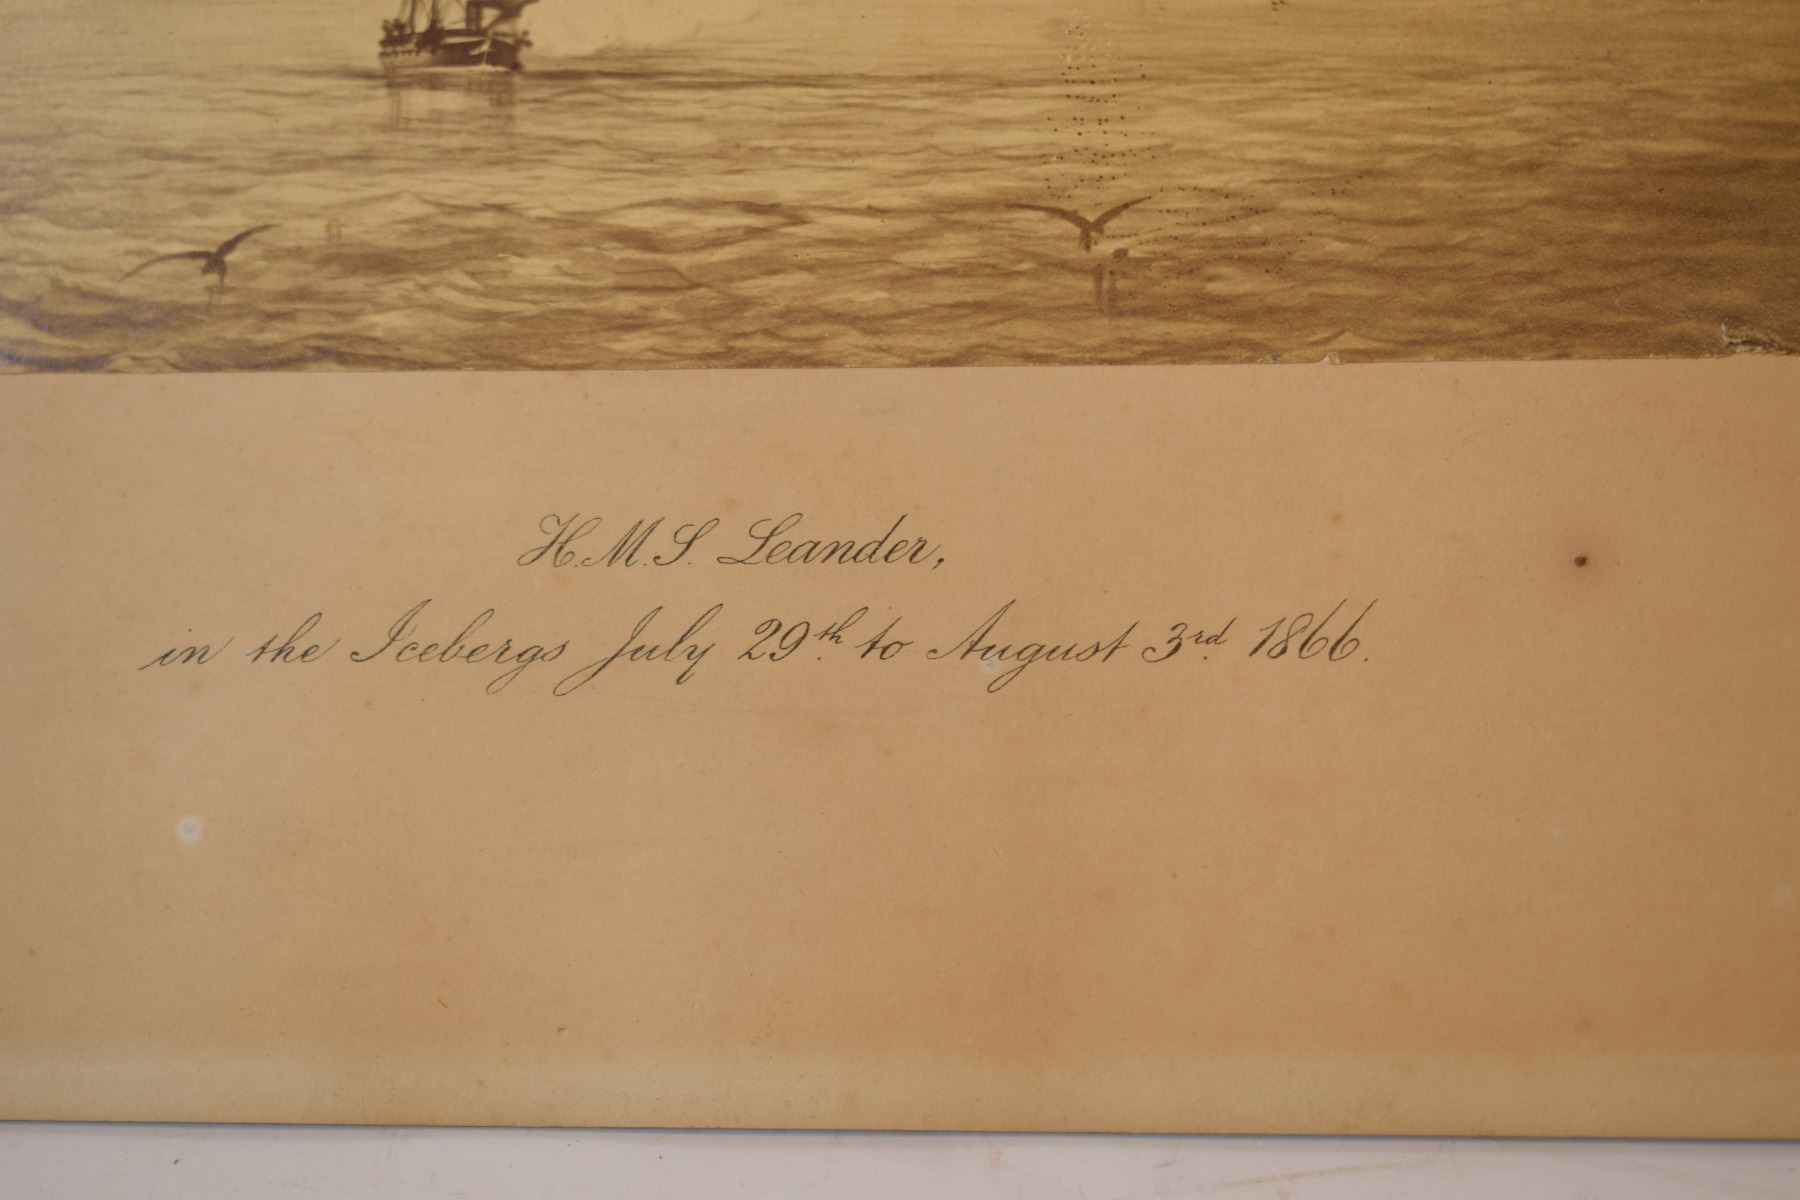 H.M.S. Leander,
in the Icebergs July 29th. to August 3rd. 1866.